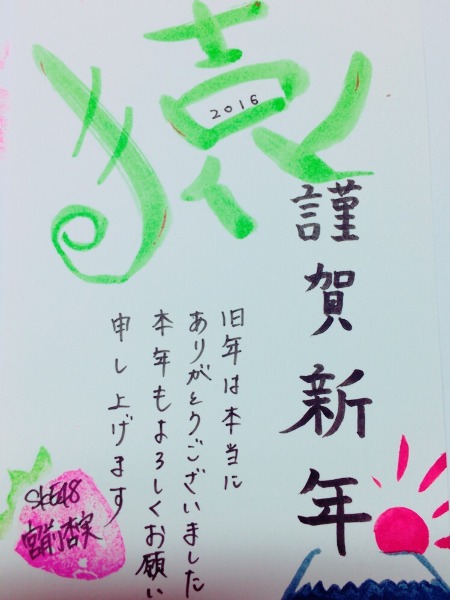 猿
2016
謹賀新年
旧年は本当に
ありがとうございました
本年もよろしくお願い
申し上げます
SKE48
宮前杏実